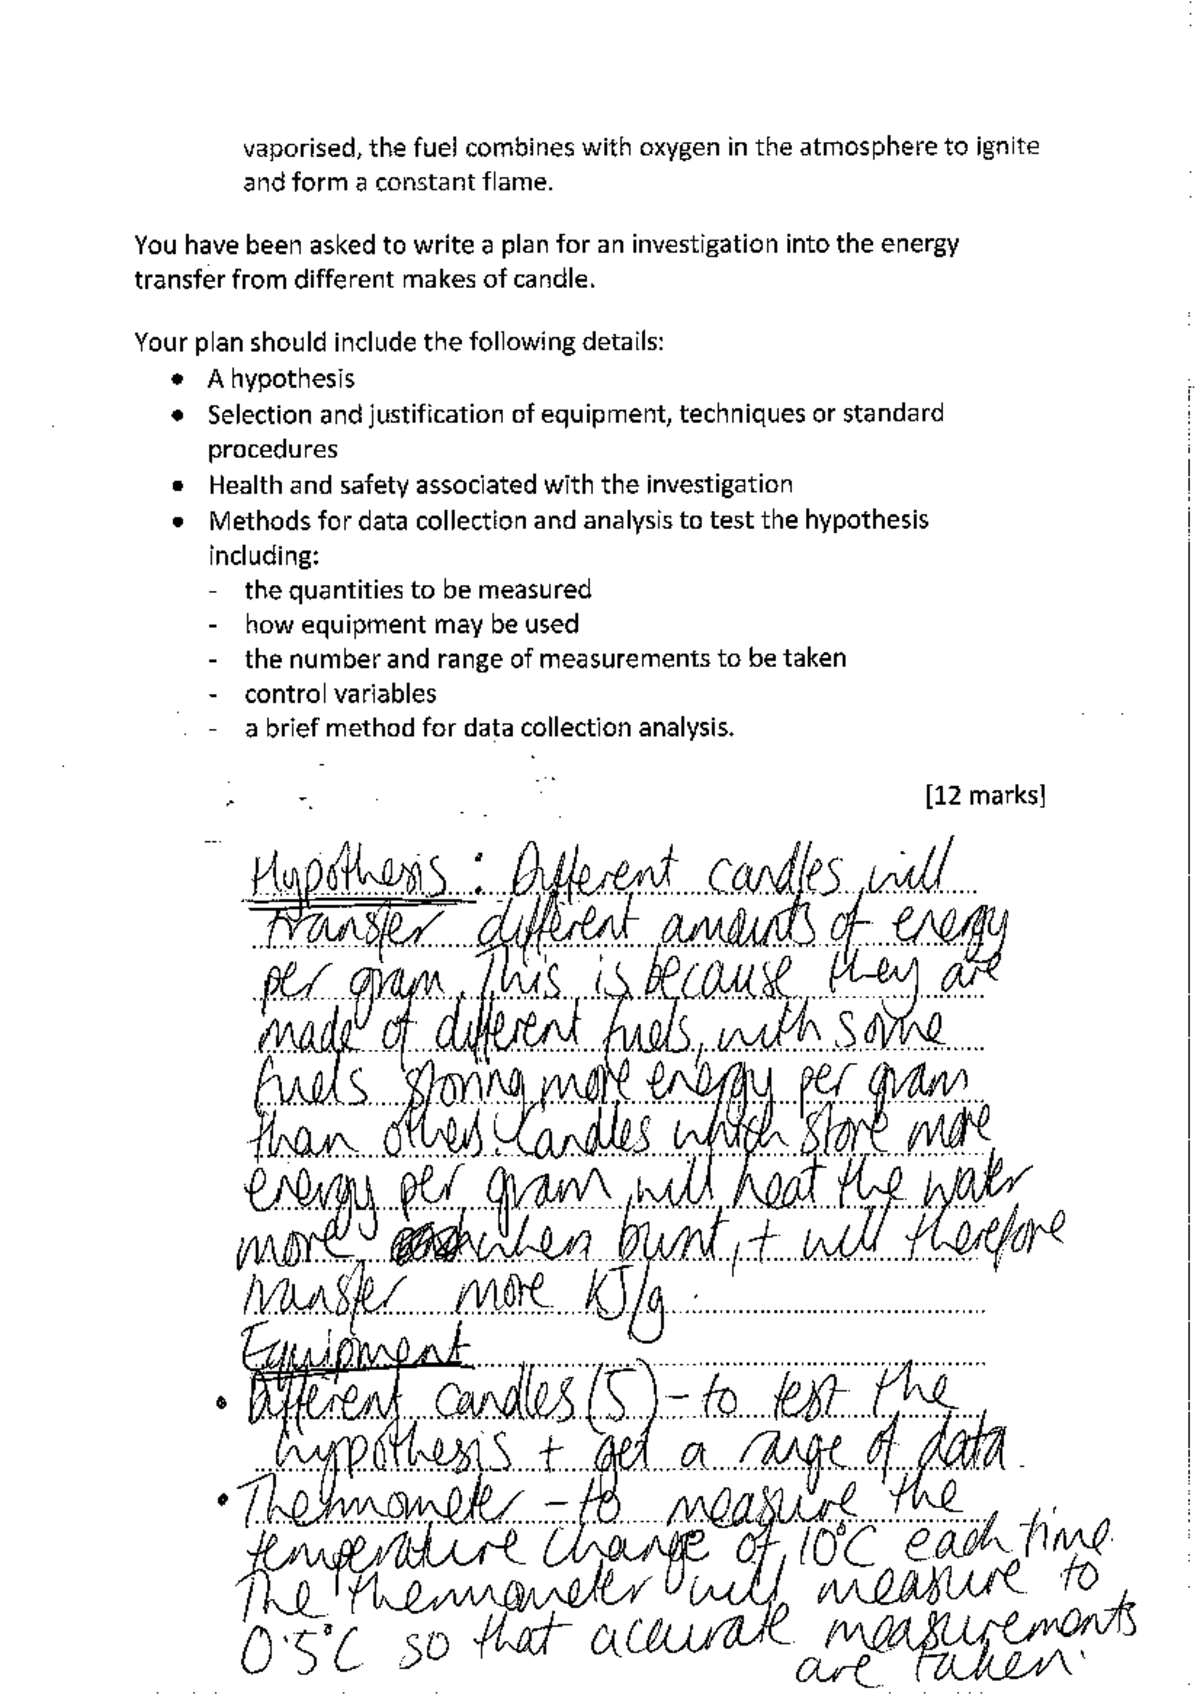 vaporised, the fuel combines with oxygen in the atmosphere to ignite
and form a constant flame.
You have been asked to write a plan for an investigation into the energy
transfer from different makes of candle.
Your plan should include the following details:
• A hypothesis
• Selection and justification of equipment, techniques or standard
procedures
• Health and safety associated with the investigation
• Methods for data collection and analysis to test the hypothesis
including:
- the quantities to be measured
- how equipment may be used
- the number and range of measurements to be taken
- control variables
- a brief method for data collection analysis.
[12 marks]
Hypothesis : Different candles will
transfer different amounts of energy
per gram. This is because they are
made of different fuels, with some
fuels storing more energy per gram
than others. Candles which store more
energy per gram will heat the water
more when burnt, + will therefore
transfer more kJ/g.
Equipment
• Different candles (5) - to test the
hypothesis + get a range of data.
• Thermometer - to measure the
temperature change of 10°C each time.
The thermometer will measure to
0.5°C so that accurate measurements
are taken.